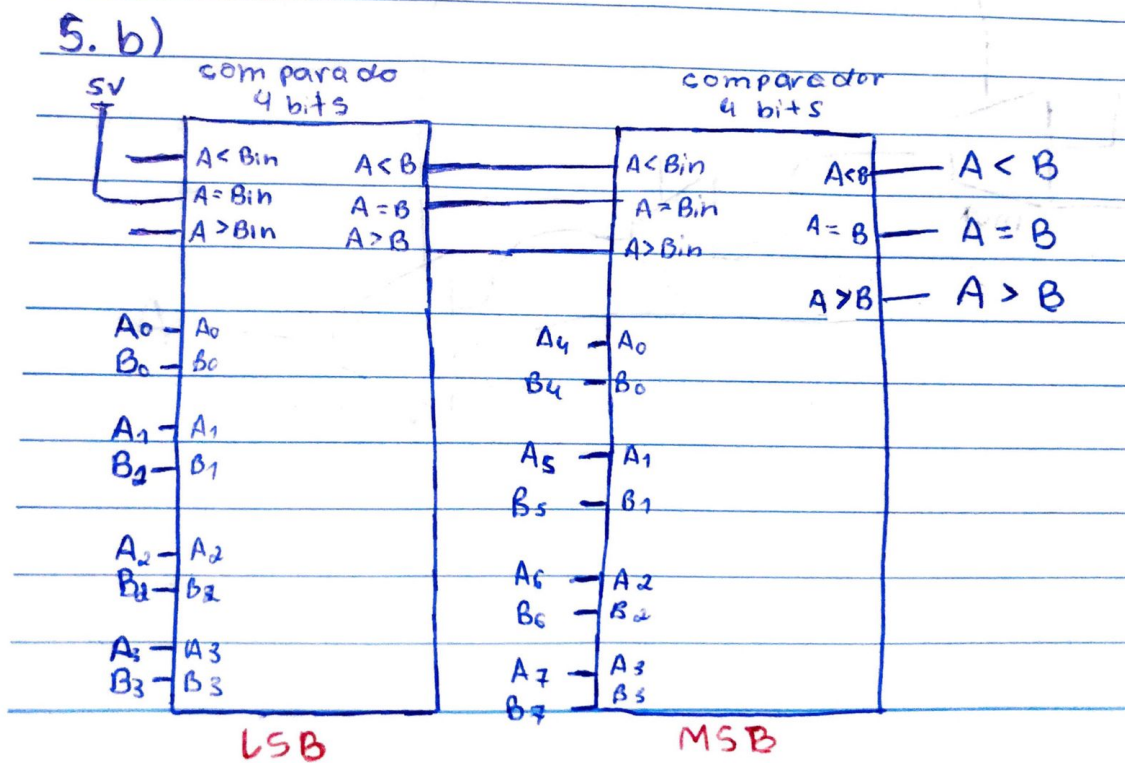 5. b)
comparado
4 bits
5V
A < Bin
A = Bin
A > Bin
A < B
A = B
A > B
A0 A0
B0 B0
A1 A1
B2 B1
A2 A2
B2 B2
A3 A3
B3 B3
LSB
comparador
4 bits
A < Bin
A = Bin
A > Bin
A<B A < B
A = B A = B
A > B A > B
A4 A0
B4 B0
A5 A1
B5 B1
A6 A2
B6 B2
A7 A3
B7 B3
MSB